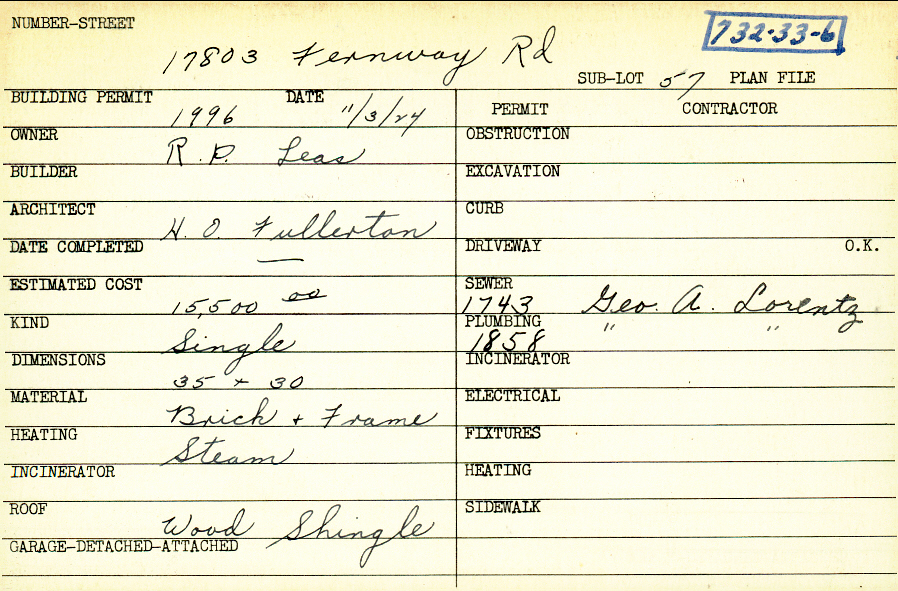 NUMBER-STREET
732-33-6
17803 Fernway Rd
SUB-LOT 57 PLAN FILE
BUILDING PERMIT 1996 DATE 11/3/24
OWNER R. P. Leas
BUILDER
ARCHITECT H. O. Fullerton
DATE COMPLETED —
ESTIMATED COST 15,500 00
KIND Single
DIMENSIONS 35 x 30
MATERIAL Brick + Frame
HEATING Steam
INCINERATOR
ROOF Wood Shingle
GARAGE-DETACHED-ATTACHED
PERMIT CONTRACTOR
OBSTRUCTION
EXCAVATION
CURB
DRIVEWAY O.K.
SEWER
1743 Geo. A. Lorentz
PLUMBING " "
1858
INCINERATOR
ELECTRICAL
FIXTURES
HEATING
SIDEWALK